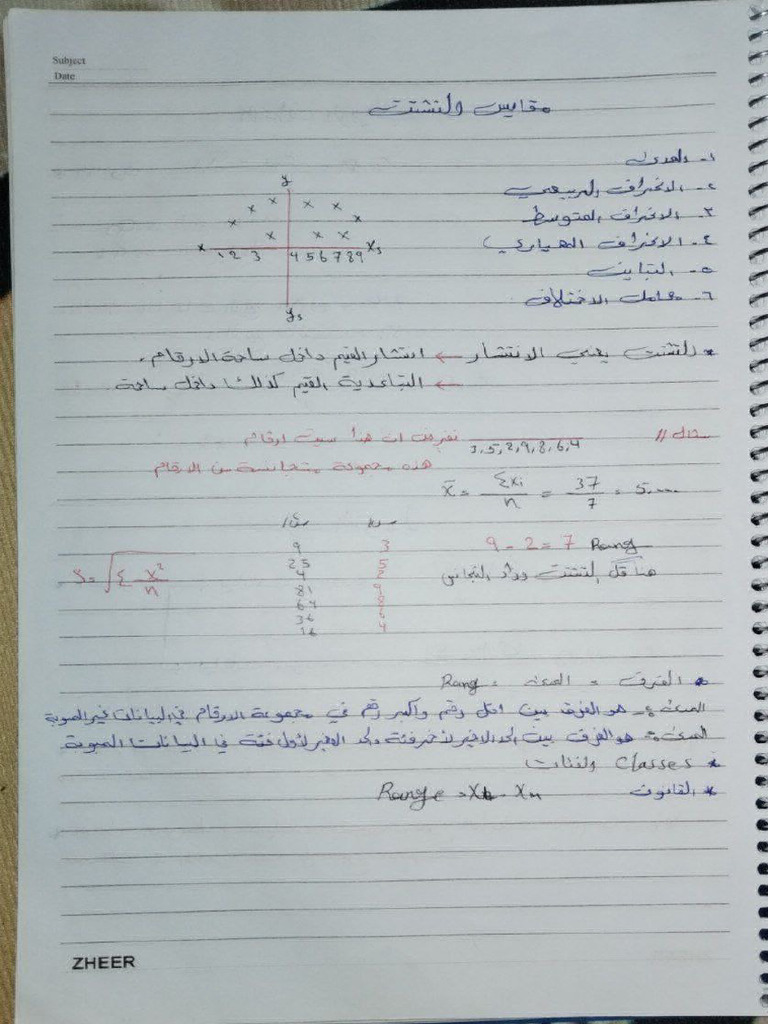 Subject
Date
مقايس التشتت
١- المدى
٢- الانحراف الربيعي
٣- الانحراف المتوسط
٤- الانحراف المعياري
٥- التباين
٦- معامل الاختلاف
y
x 1 2 3 4 5 6 7 8 9 Xs
ys
* التشتت يعني الانتشار ← انتشار القيم داخل ساحة الارقام.
← التباعدية القيم كذلك داخل ساحة
مثال // 3,5,2,9,8,6,4 نفرض ان هذا سيت ارقام
هذه مجموعة متجانسة من الارقام
x̄ = Σxi / n = 37 / 7 = 5.
9 - 2 = 7 Rang
هنا قل التشتت وزاد التجانس
3 9
5 25
2 4
9 81
8 64
6 36
4 16
S = √Σ x² / n
* الفرق = المدى = Rang
المدى :- هو الفرق بين اقل رقم واكبر رقم في مجموعة الارقام في البيانات غير المبوبة
المدى :- هو الفرق بين الحد الاخير لأخر فئة والحد الصغير لأول فئة في البيانات المبوبة
* Classes والفئات
* القانون Range = XL - Xn
ZHEER